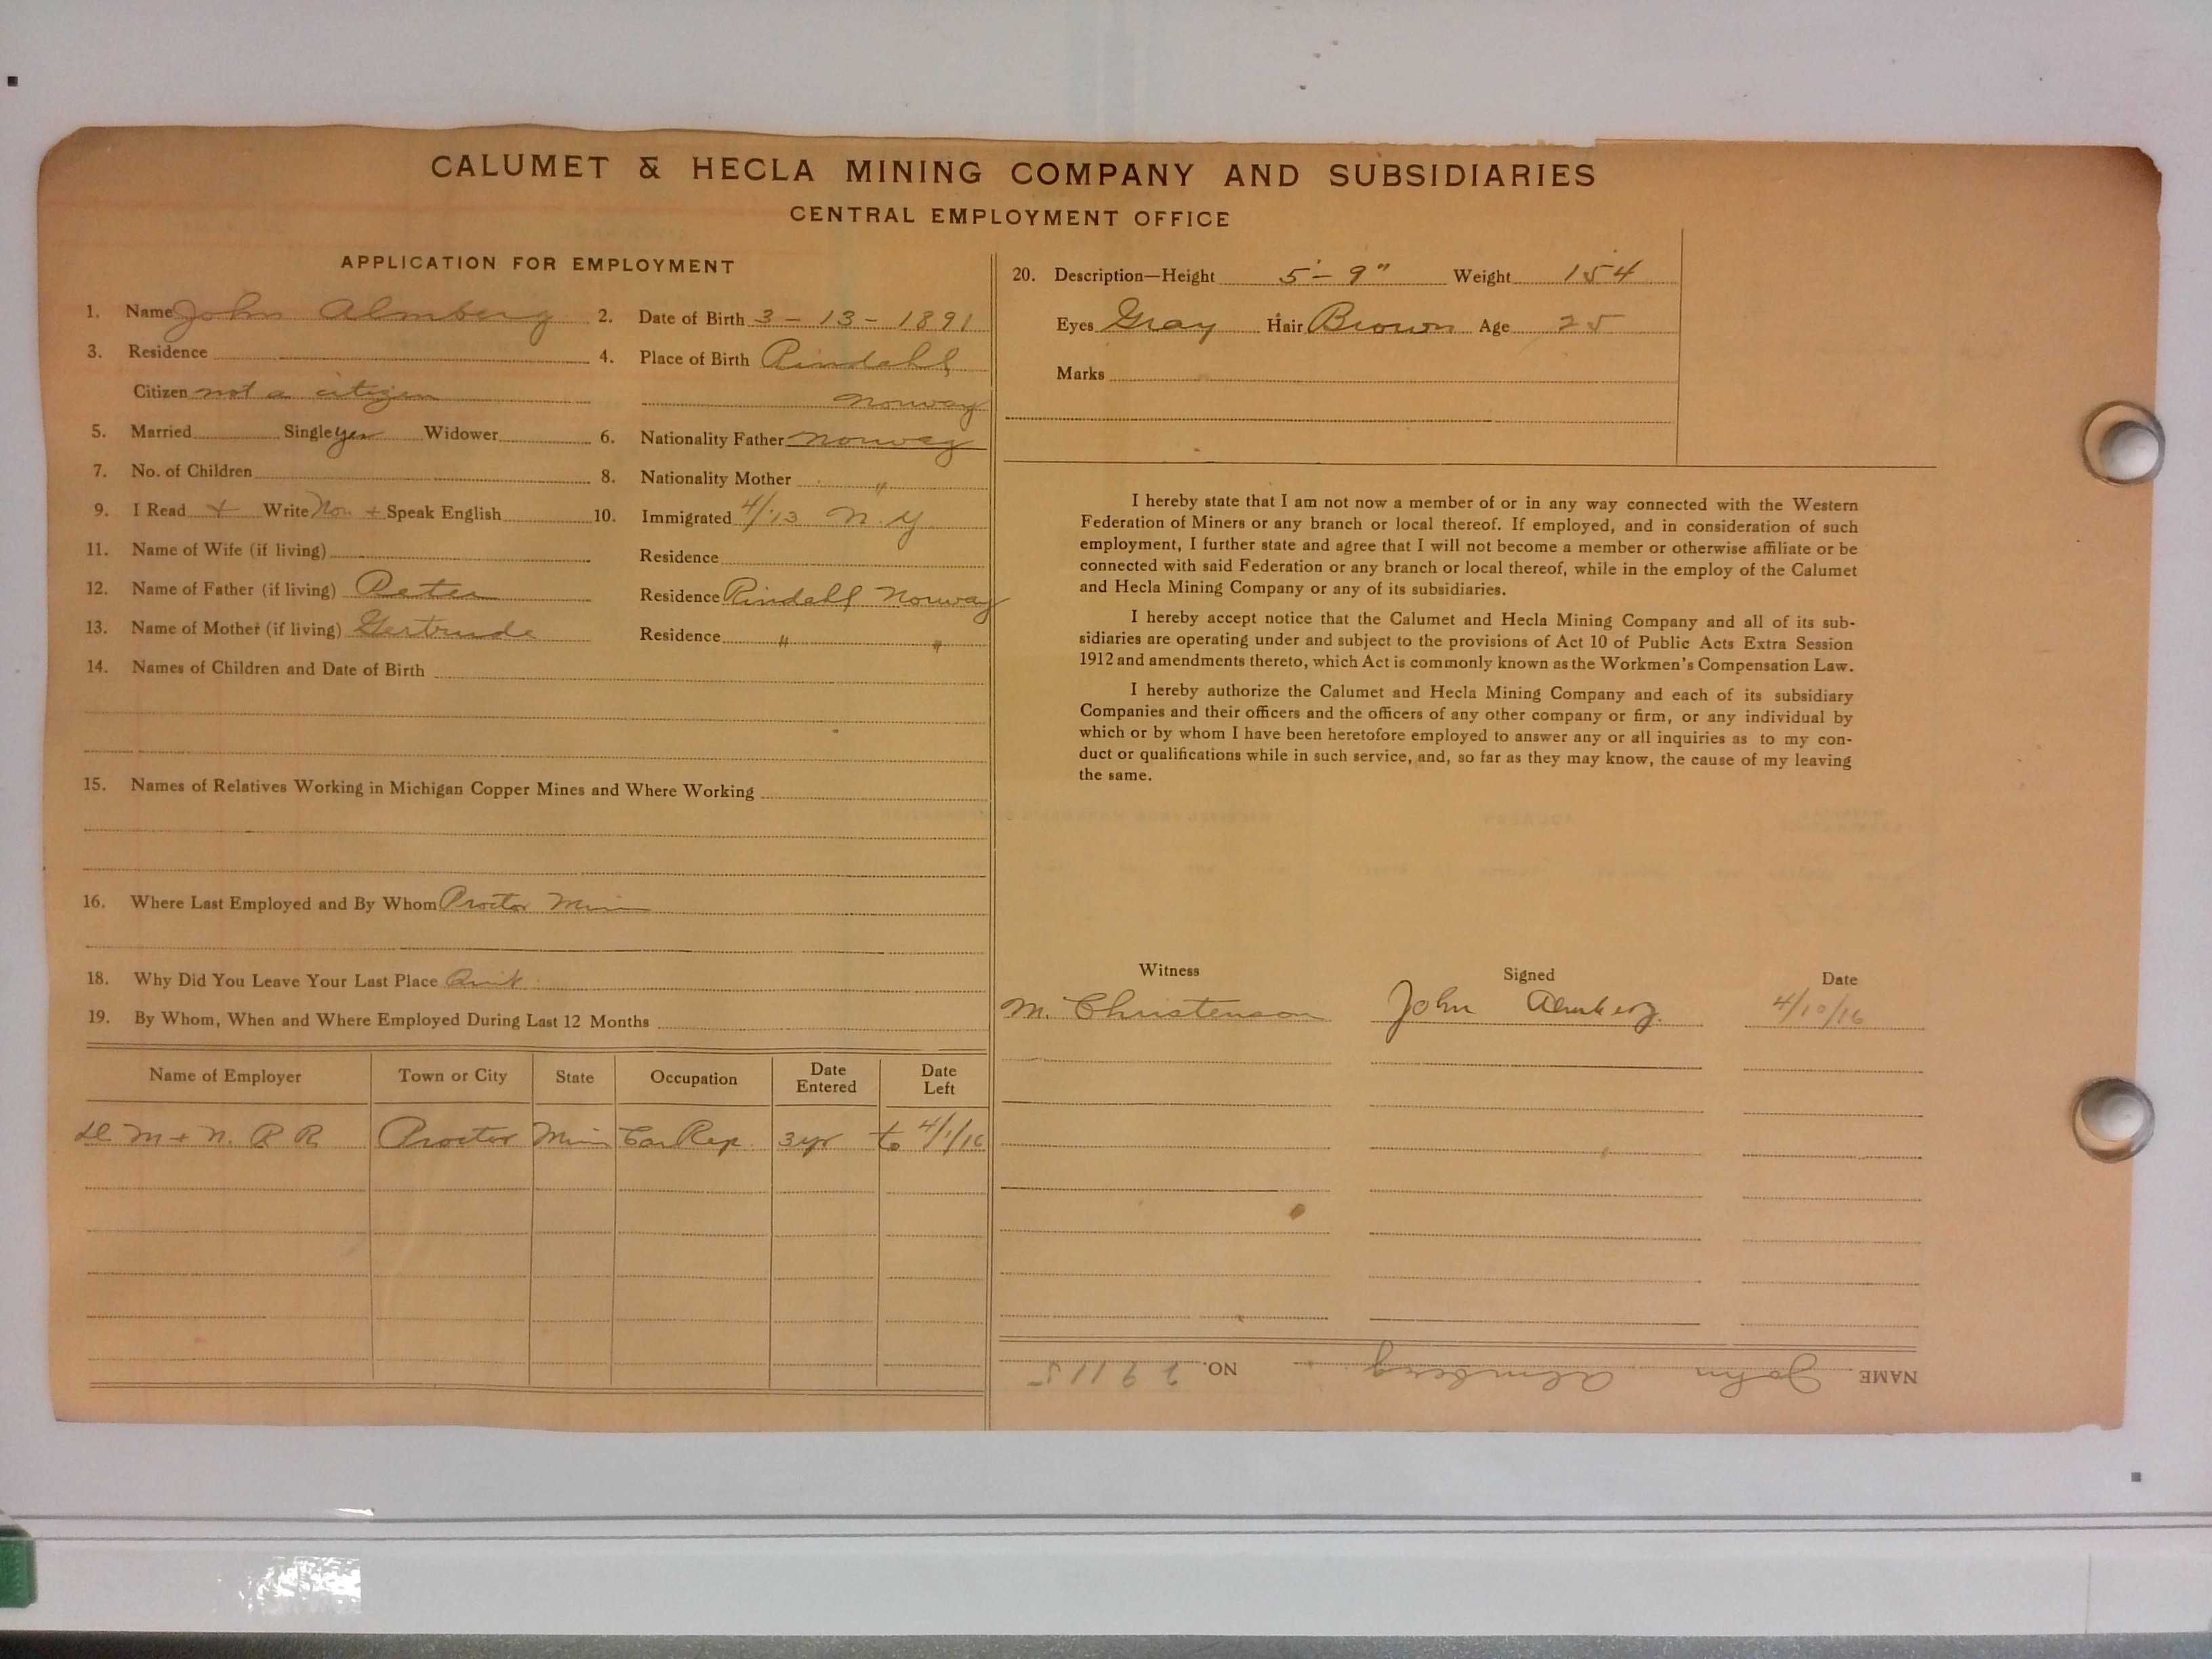 CALUMET & HECLA MINING COMPANY AND SUBSIDIARIES
CENTRAL EMPLOYMENT OFFICE
APPLICATION FOR EMPLOYMENT
1. Name John Almberg 2. Date of Birth 3 - 13 - 1891
3. Residence 4. Place of Birth Rindahl
Citizen not a citizen Norway
5. Married Single yes Widower 6. Nationality Father Norway
7. No. of Children 8. Nationality Mother "
9. I Read + Write Nor + Speak English 10. Immigrated 4/13 N. Y
11. Name of Wife (if living) Residence
12. Name of Father (if living) Peter Residence Rindahl Norway
13. Name of Mother (if living) Gertrude Residence " "
14. Names of Children and Date of Birth
15. Names of Relatives Working in Michigan Copper Mines and Where Working
16. Where Last Employed and By Whom Proctor Minn
18. Why Did You Leave Your Last Place Quit
19. By Whom, When and Where Employed During Last 12 Months
Name of Employer Town or City State Occupation Date Entered Date Left
M + N. R R Proctor Minn Car Rep. 3 yr to 4/1/16
20. Description—Height 5'- 9" Weight 154
Eyes Gray Hair Brown Age 25
Marks
I hereby state that I am not now a member of or in any way connected with the Western
Federation of Miners or any branch or local thereof. If employed, and in consideration of such
employment, I further state and agree that I will not become a member or otherwise affiliate or be
connected with said Federation or any branch or local thereof, while in the employ of the Calumet
and Hecla Mining Company or any of its subsidiaries.
I hereby accept notice that the Calumet and Hecla Mining Company and all of its sub-
sidiaries are operating under and subject to the provisions of Act 10 of Public Acts Extra Session
1912 and amendments thereto, which Act is commonly known as the Workmen's Compensation Law.
I hereby authorize the Calumet and Hecla Mining Company and each of its subsidiary
Companies and their officers and the officers of any other company or firm, or any individual by
which or by whom I have been heretofore employed to answer any or all inquiries as to my con-
duct or qualifications while in such service, and, so far as they may know, the cause of my leaving
the same.
Witness Signed Date
M. Christenson John Almberg. 4/10/16
NAME John Almberg NO. 29115